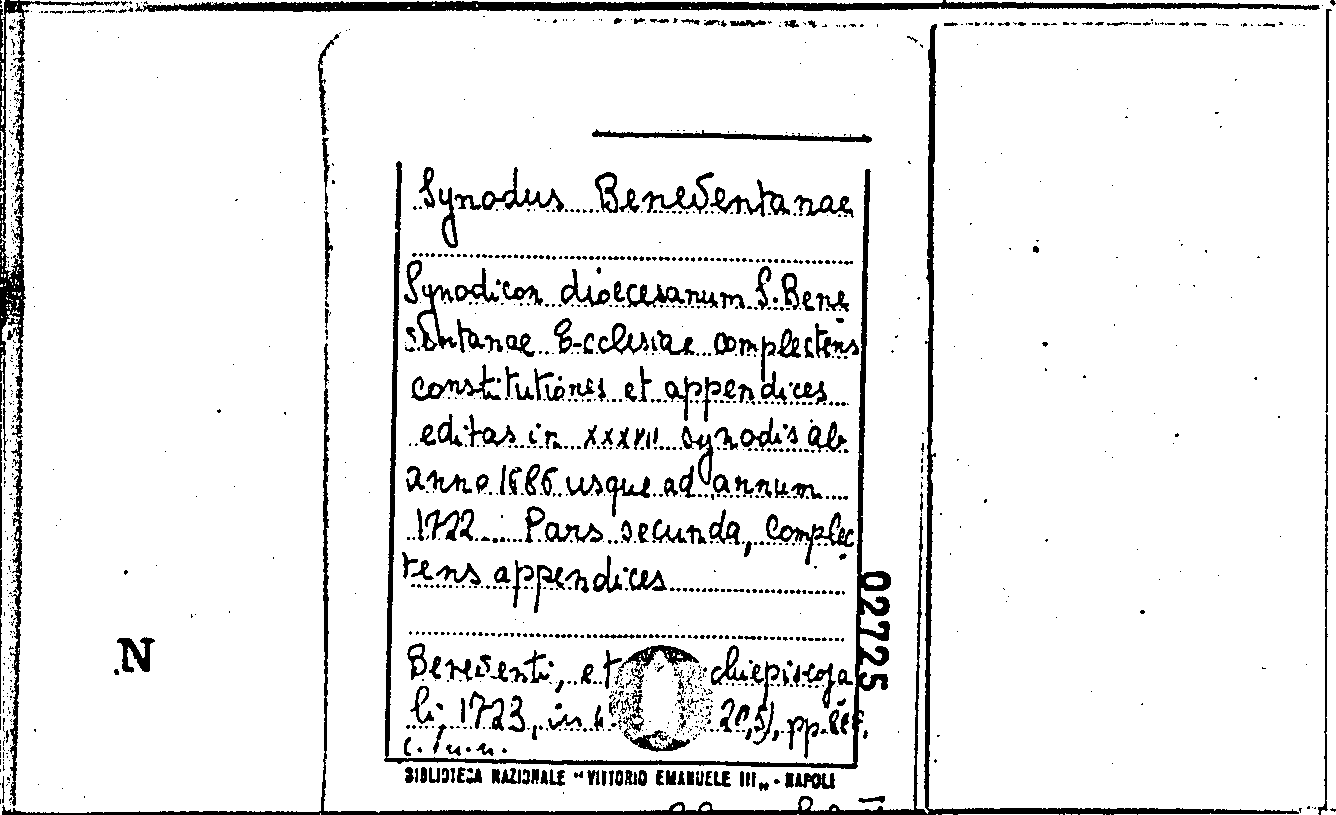 Synodus Beneventanae
Synodicon dioecesanum S. Bene
ventanae Ecclesiae complectens
constitutiones et appendices
editas in XXXVII synodis ab
anno 1686 usque ad annum
1722... Pars secunda, complec
tens appendices
Beneventi, et chiepiscopa
li, 1723, in 4. 20,5), pp.
02725
N
BIBLIOTECA NAZIONALE "VITTORIO EMANUELE III„ - NAPOLI